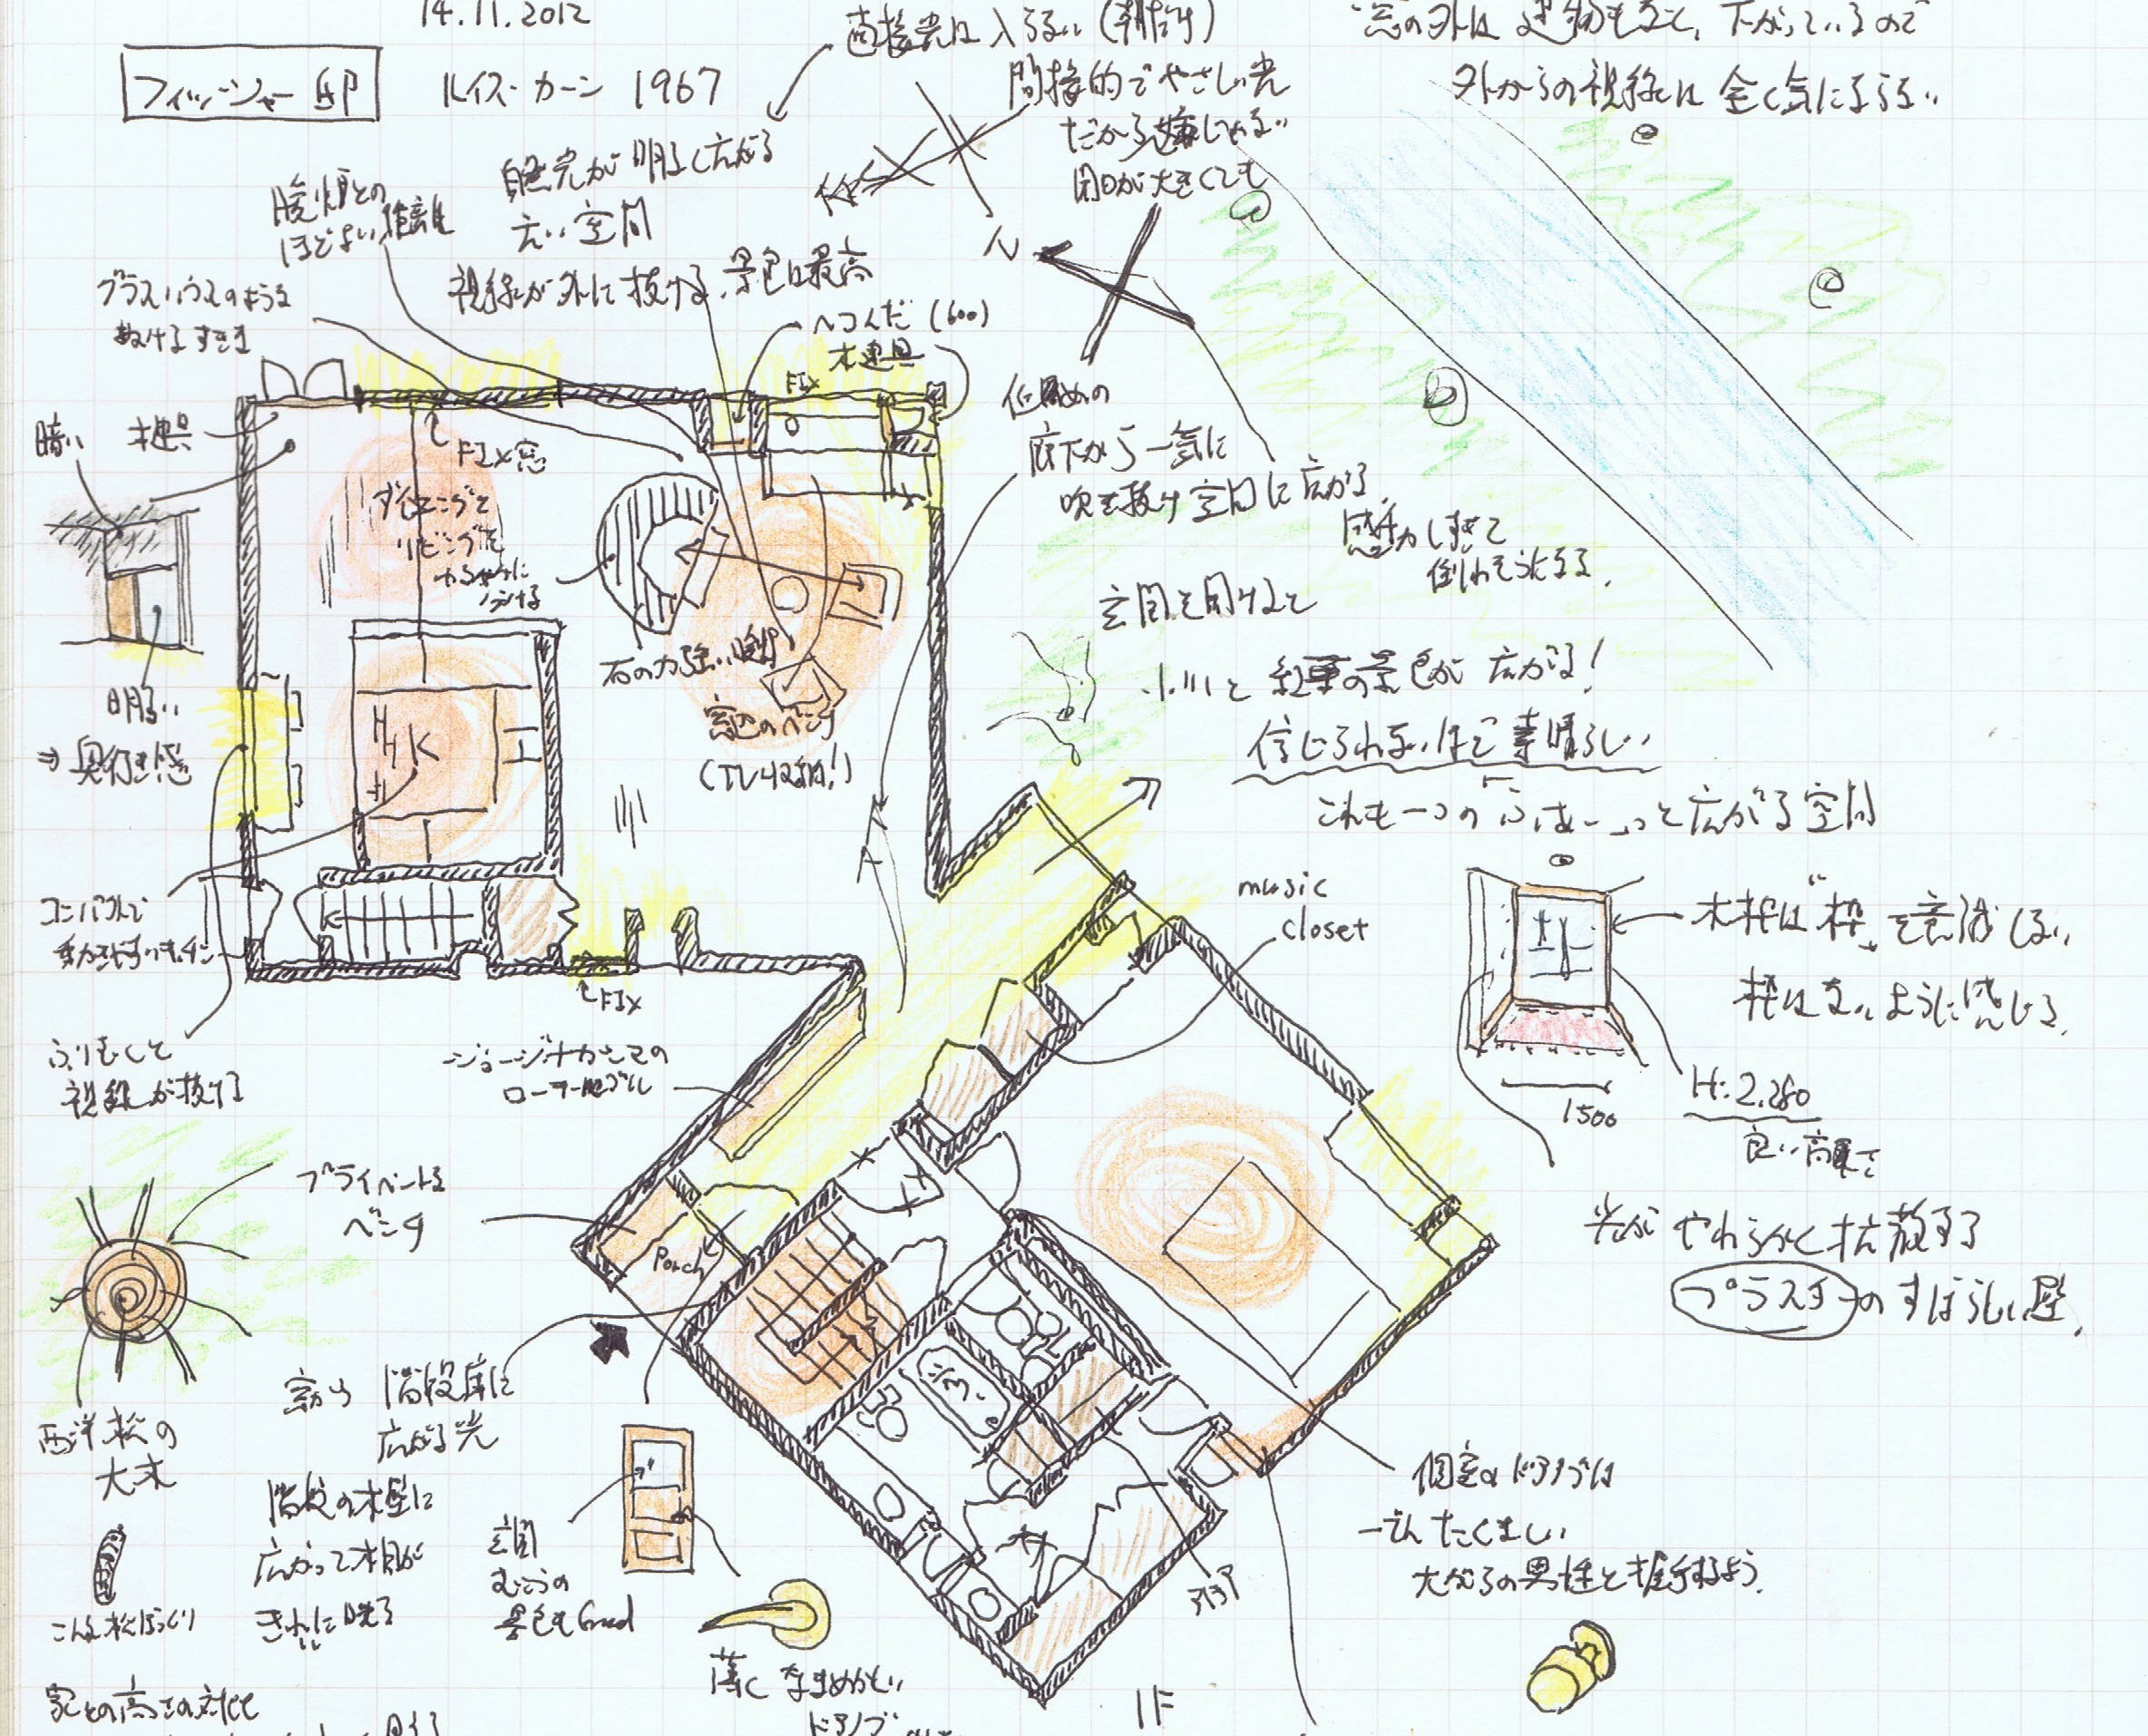 14.11.2012
フィッシャー邸
ルイス・カーン 1967
直接光は入らない(朝だけ)
間接的でやさしい光
だから嫌じゃない
開口が大きくても
窓の外は建物もなく、下がっているので
外からの視線は全く気にならない
暖炉との
ほどよい距離
自然光が明るく広がる
広い空間
視線が外に抜ける、景色は最高
グラスハウスのような
抜けるすきま
ヘコんだ(600)
木建具
FIX
N
暗い
木建具
FIX窓
ダイニングと
リビングを
ゆるやかに
分ける
低めの
廊下から一気に
吹き抜け空間に広がる
感動しすぎて
倒れそうになる。
玄関を開けると
小川と紅葉の景色が広がる!
信じられないほど素晴らしい
これも一つの「ふはーっ」と広がる空間
石の力強い暖炉
窓辺のベンチ
(TV収納!)
K
明るい
⇒奥行き感
コンパクトで
動きやすいキッチン
FIX
ふりむくと
視線が抜ける
ジョージナカシマの
ローテーブル
music
closet
木枠は“枠”を意識しない
枠はないように感じる。
1500
H:2,280
良い高さ
光がやわらかく拡散する
プラスターのすばらしい壁。
プライベートな
ベンチ
Porch
西洋松の
大木
こんな松ぼっくり
窓から階段庫に
広がる光
階段の木壁に
広がって木目が
きれいに映る
玄関
むこうの
景色もGood
薄くなまめかしい
ドアノブ
個室のドアノブは
たくましい
大がらの男性と握手するよう。
1F
家との高さの対比